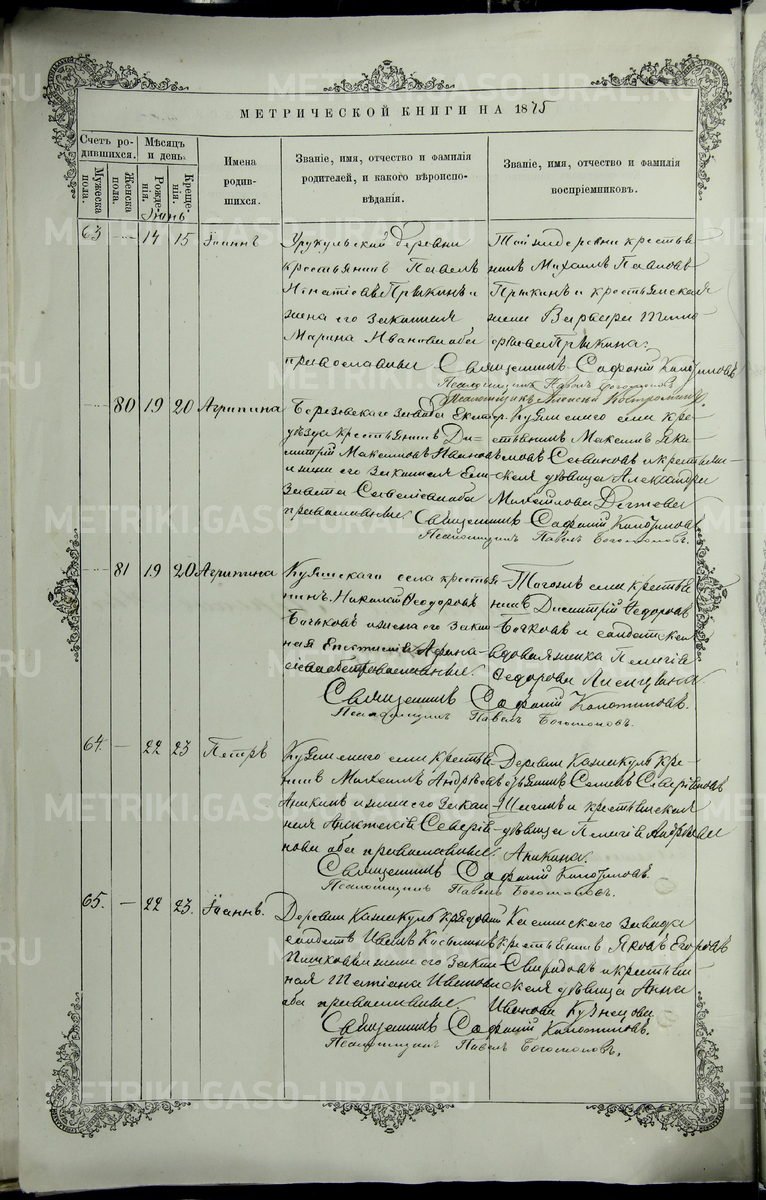 МЕТРИЧЕСКОЙ КНИГИ НА 1875
Счетъ ро-
дившихся.
Мужеска пола.
Женска пола.
Мѣсяцъ
и день.
Рожде-
нія.
Креще-
нія.
Имена
родив-
шихся.
Званіе, имя, отчество и фамилія
родителей, и какого вѣроиспо-
вѣданія.
Званіе, имя, отчество и фамилія
воспріемниковъ.
Іюнь
63 — 14 15 Іоаннъ
Урукульской деревни
крестьянинъ Павелъ
и
жена его законная
Марина Иванова оба
православные
Той же деревни крестья-
нинъ Михаилъ Павловъ
и крестьянская
жена Варвара Тимо-
Священникъ Софоній
Псаломщикъ Павелъ Богомоловъ
Псаломщикъ
— 80 19 20 Агрипина
Березовскаго завода Екатер.
уѣзда крестьянинъ Ди-
митрій Максимовъ Ивановъ
и жена его законная Ели-
завета Савельева оба
православные.
Куяшскаго села кре-
стьянинъ Максимъ Яки-
мовъ и крестьян-
ская дѣвица Александра
Михайлова
Священникъ Софоній
Псаломщикъ Павелъ Богомоловъ.
— 81 19 20 Агрипина
Куяшскаго села крестья-
нинъ Николай Ѳеодоровъ
Бочковъ и жена его закон-
ная Афана-
сьева оба православные.
Тогожъ села крестья-
нинъ Димитрій Ѳедоровъ
Бочковъ и солдатская
вдова Пелагія
Ѳедорова
Священникъ Софоній
Псаломщикъ Павелъ Богомоловъ.
64. — 22 23 Петръ
Куяшскаго села крестья-
нинъ Михаилъ Андрѣевъ
Аникинъ и жена его закон-
ная Анастасія Северья-
нова оба православные.
Деревни Кашакуль кре-
стьянинъ Семенъ Северьяновъ
и крестьянская
дѣвица Пелагія Андрѣева
Аникина.
Священникъ Софоній
Псаломщикъ Павелъ Богомоловъ.
65. — 22 23. Іоаннъ.
Деревни Кашакуль рядовой
солдатъ Иванъ
и жена его закон-
ная Татіана Иванова
оба православные.
Каслинскаго завода
крестьянинъ Яковъ Егоровъ
Свиридовъ и крестьян-
ская дѣвица Анна
Иванова Кузнецова
Священникъ Софоній
Псаломщикъ Павелъ Богомоловъ.
METRIKI.GASO-URAL.RU